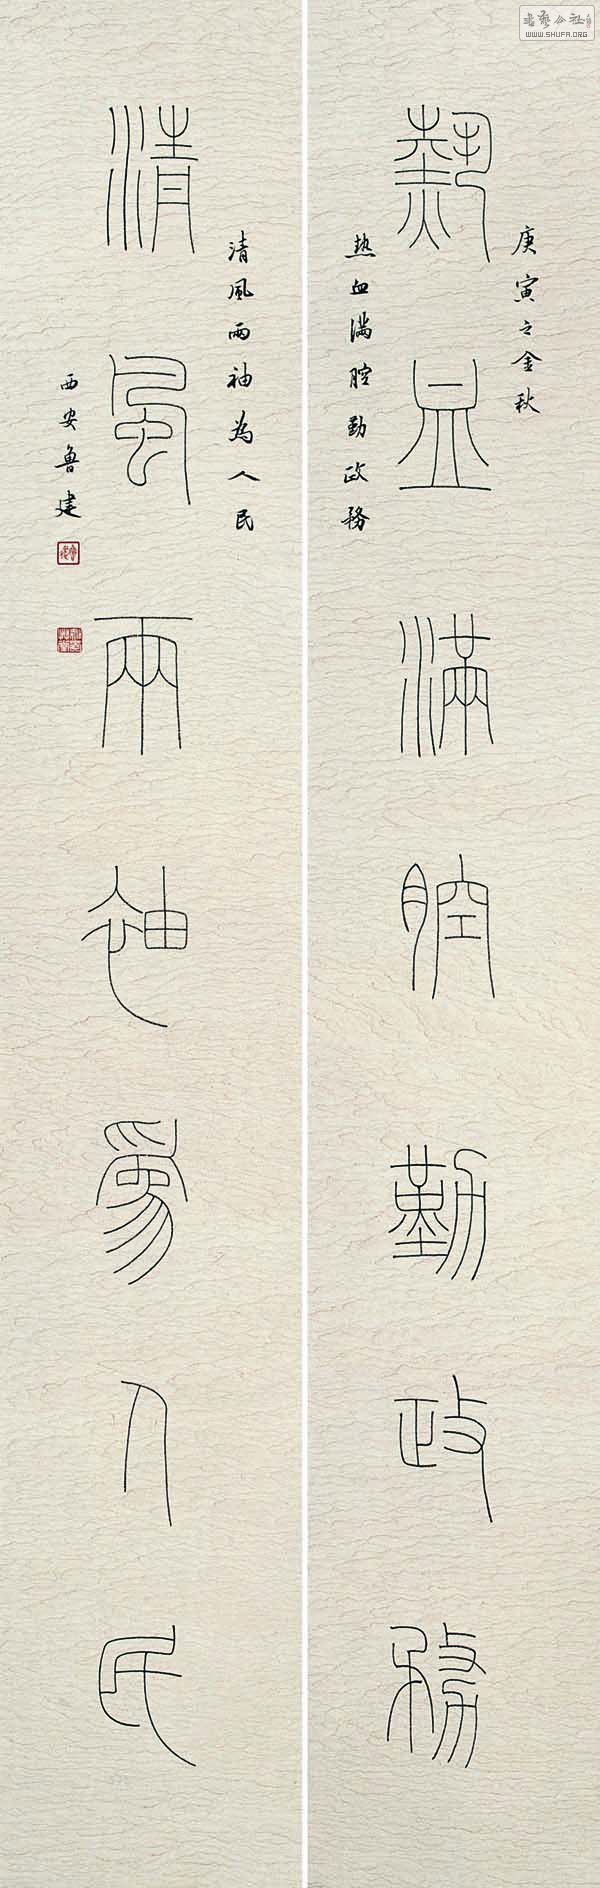 庚寅之金秋
熱血滿腔勤政務
热血满腔勤政務
清風兩袖為人民
清風兩袖爲人民
西安魯建
書藝公社
WWW.SHUFA.ORG